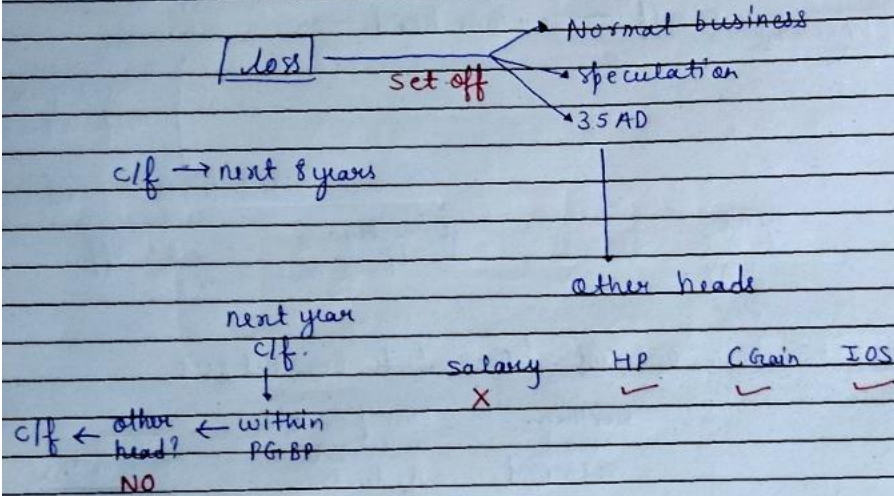 Normal business
Loss
Set off
speculation
35AD
c/f → next 8 years
Other heads
next year
c/f.
Salary HP C Gain IOS
X ✓ ✓ ✓
c/f ← other head? ← within PGBP
NO